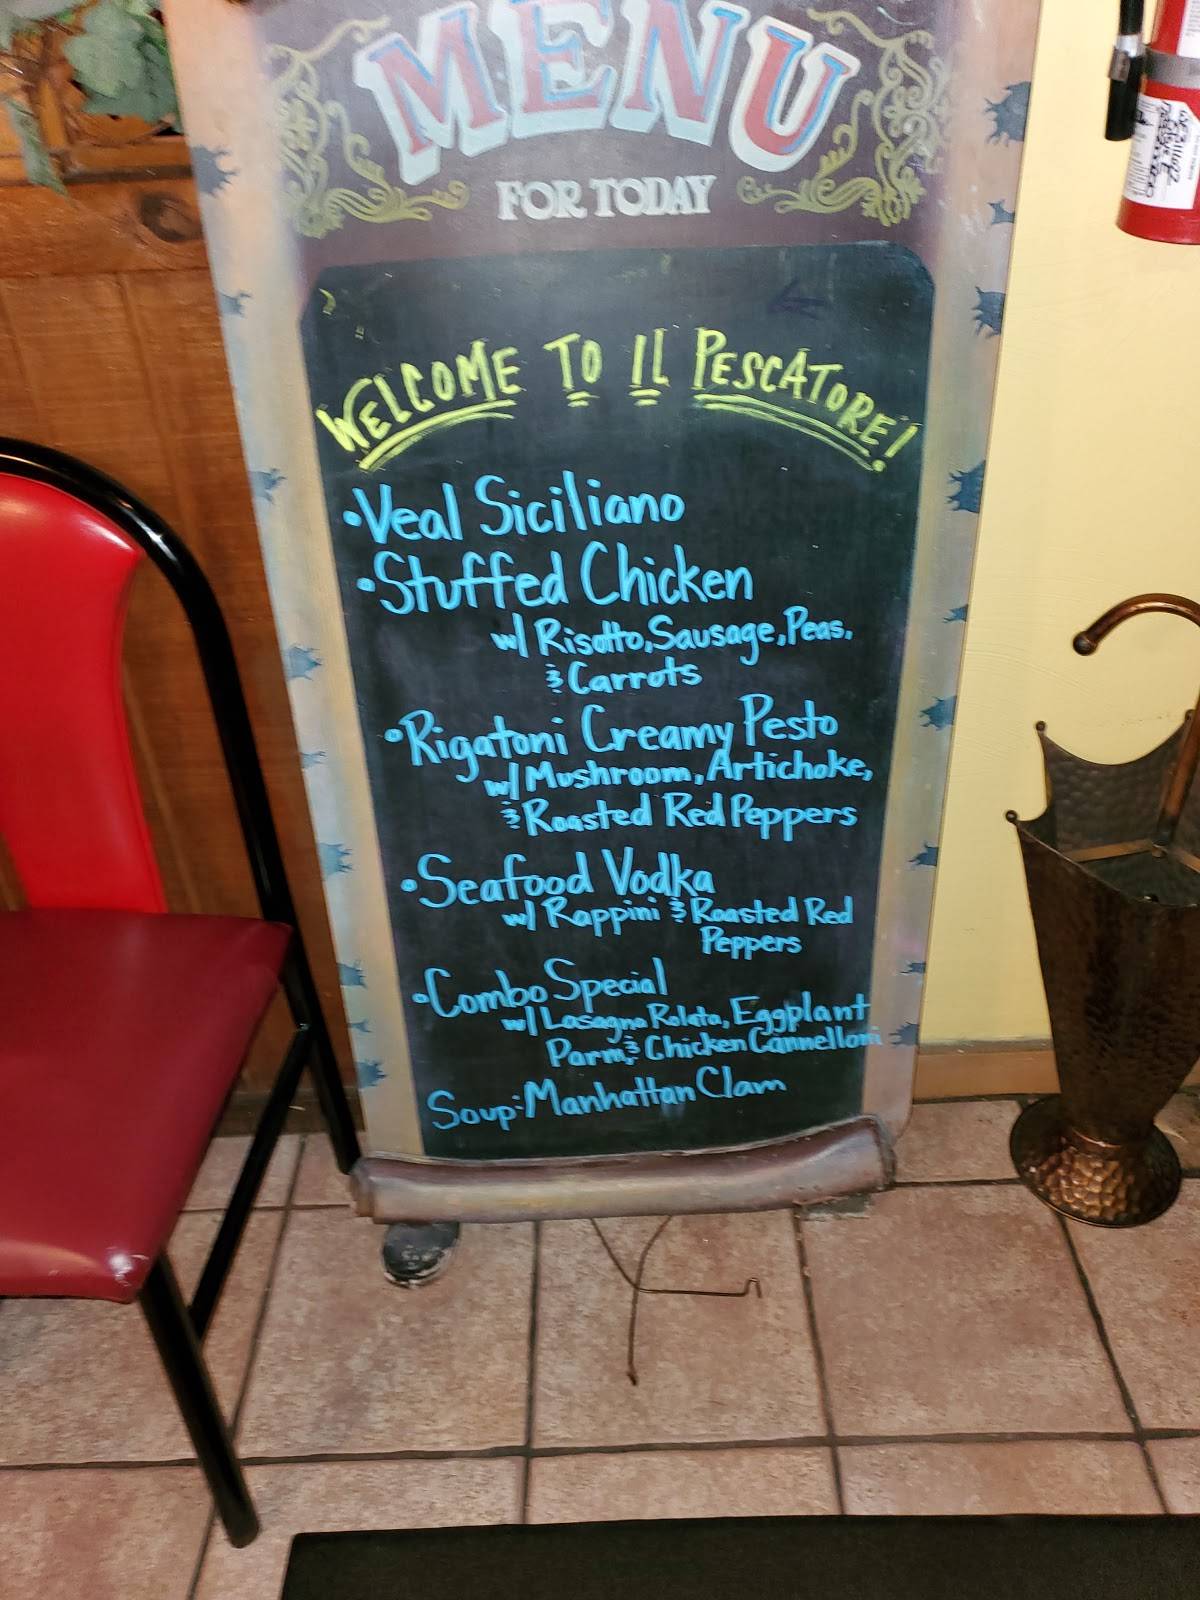 MENU
FOR TODAY
WELCOME TO IL PESCATORE!
•Veal Siciliano
•Stuffed Chicken
w/ Risotto, Sausage, Peas,
& Carrots
•Rigatoni Creamy Pesto
w/ Mushroom, Artichoke,
& Roasted Red Peppers
•Seafood Vodka
w/ Rappini & Roasted Red
Peppers
•Combo Special
w/ Lasagna Rolata, Eggplant
Parm, & Chicken Cannelloni
Soup: Manhattan Clam